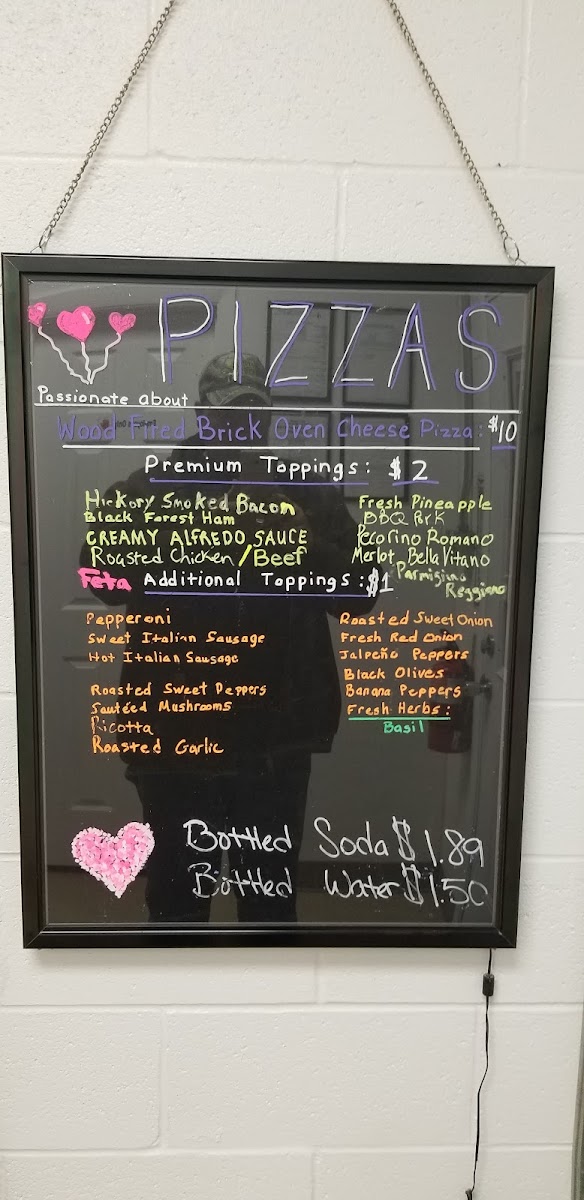 PIZZAS
Passionate about
Wood Fired Brick Oven Cheese Pizza: $10
Premium Toppings: $2
Hickory Smoked Bacon
Black Forest Ham
CREAMY ALFREDO SAUCE
Roasted Chicken/Beef
Fresh Pineapple
BBQ Pork
Pecorino Romano
Merlot BellaVitano
Parmigino
Reggiano
Feta
Additional Toppings: $1
Pepperoni
Sweet Italian Sausage
Hot Italian Sausage
Roasted Sweet Peppers
Sautéed Mushrooms
Ricotta
Roasted Garlic
Roasted Sweet Onion
Fresh Red Onion
Jalpeño Peppers
Black Olives
Banana Peppers
Fresh Herbs:
Basil
Bottled Soda $1.89
Bottled Water $1.50